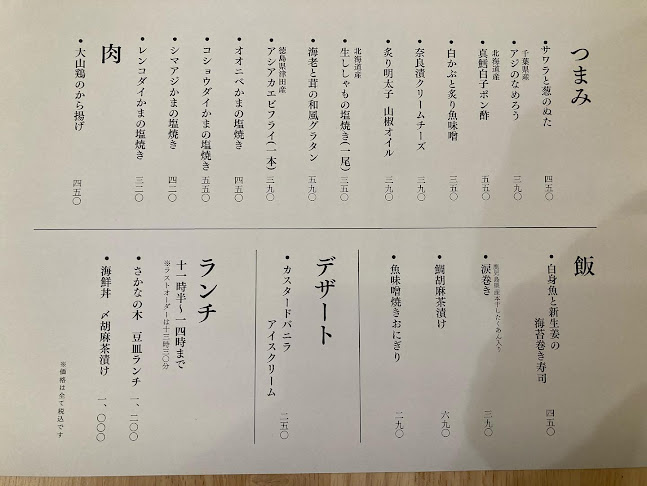 つまみ
・サワラと葱のぬた 四五〇
千葉県産
・アジのなめろう 三九〇
北海道産
・真鱈白子ポン酢 五五〇
・白かぶと炙り魚味噌 三五〇
・奈良漬クリームチーズ 三九〇
・炙り明太子 山椒オイル 三九〇
北海道産
・生ししゃもの塩焼き(一尾) 三五〇
・海老と茸の和風グラタン 五九〇
徳島県津田産
・アシアカエビフライ(一本) 三九〇
・オオニベかまの塩焼き 四五〇
・コショウダイかまの塩焼き 五五〇
・シマアジかまの塩焼き 四二〇
・レンコダイかまの塩焼き 三二〇
肉
・大山鶏のから揚げ 四五〇
飯
・白身魚と新生姜の
海苔巻き寿司 四五〇
鹿児島県産本干したくあん入り
・涙巻き 三九〇
・鯛胡麻茶漬け 六九〇
・魚味噌焼きおにぎり 二九〇
デザート
・カスタードバニラ
アイスクリーム 二五〇
ランチ
十一時半〜一四時まで
※ラストオーダーは十三時三〇分
・さかなの木 豆皿ランチ 一、二〇〇
・海鮮丼 〆胡麻茶漬け 一、〇〇〇
※価格は全て税込です